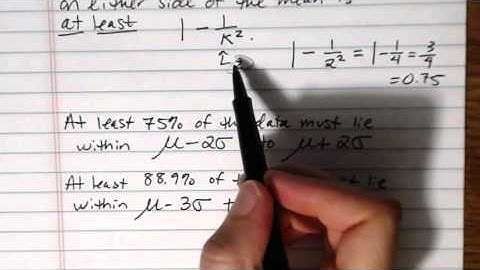 on either side of the mean is
at least 1 - 1/K².
2 3
1 - 1/2² = 1 - 1/4 = 3/4
= 0.75
At least 75% of the data must lie
within μ - 2σ to μ + 2σ
At least 88.9% of t lie
within μ - 3σ